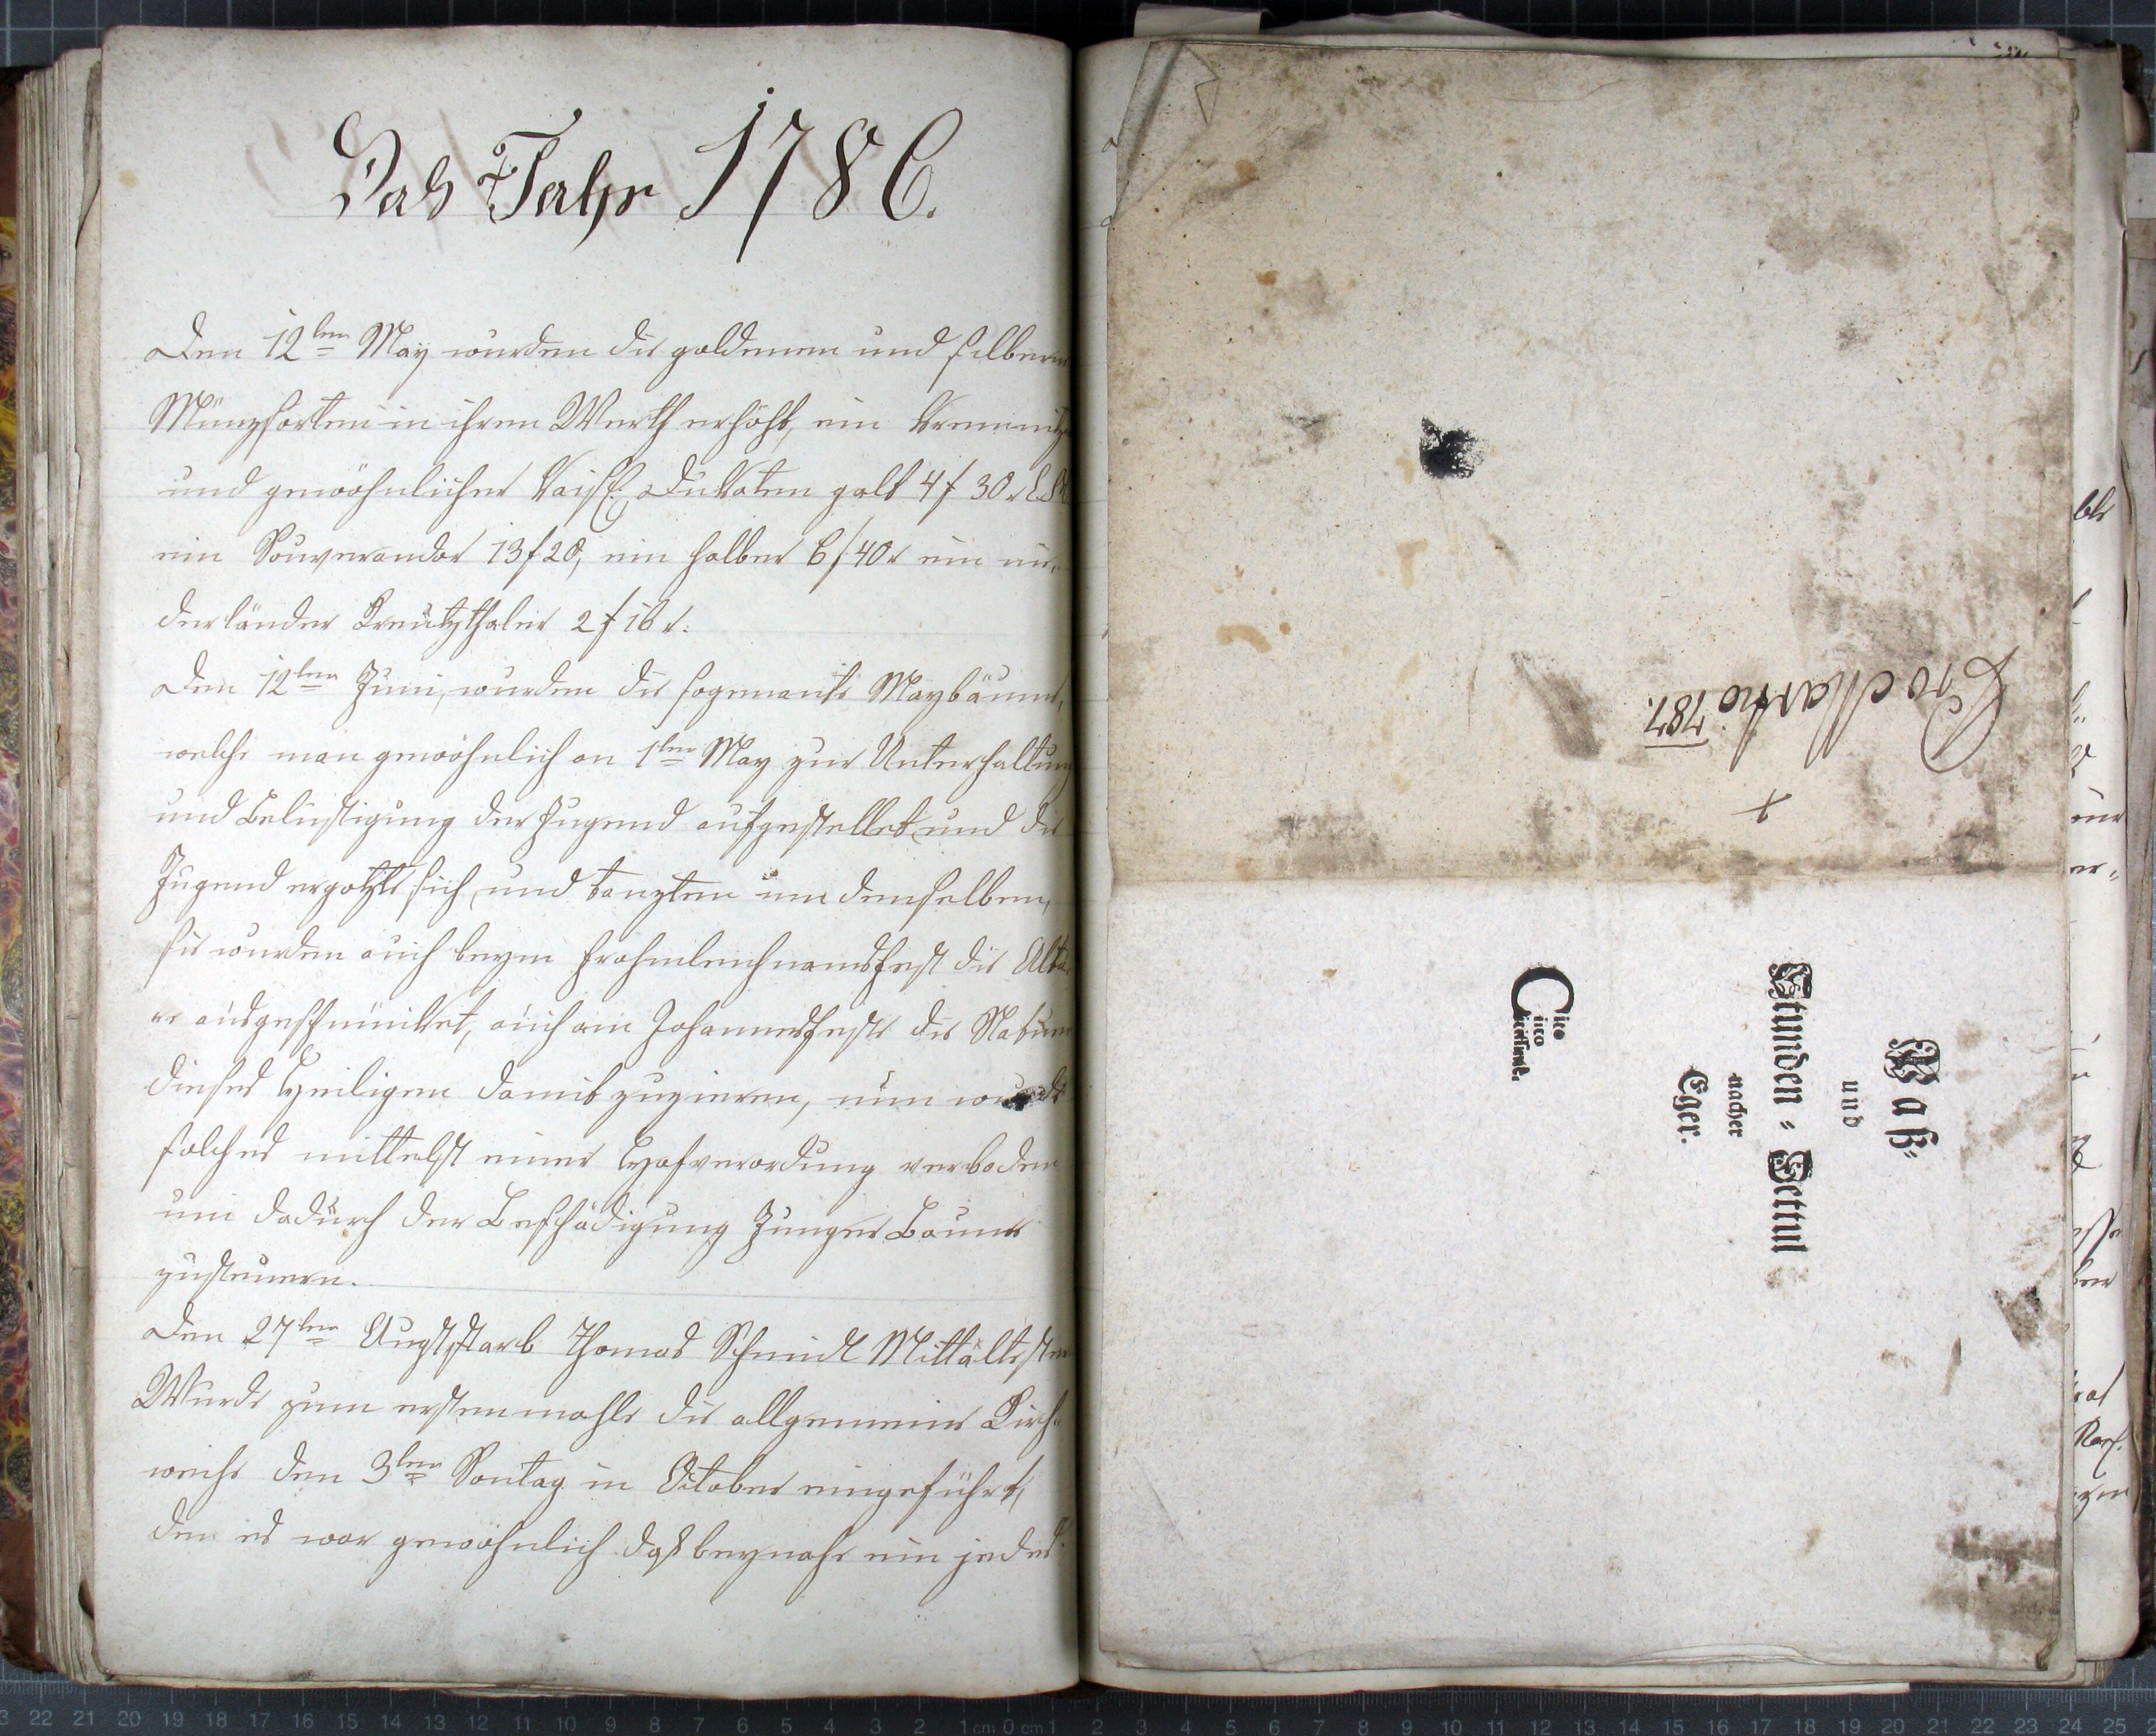 Das Jahr 1786.
Den 12ten May wurden die goldenen und silberen
Münzsorten in ihren Werth erhöht, ein Kremnitzer
und gewöhnlicher Kaisl: Dukaten galt 4 f 30 x
ein Souverandor 13 f 20, ein halber 6 f 40 x ein nie-
derländer Kreutzthaler 2 f 16 x.
Den 12ten Juni, wurden die sogenante Maybäume,
welche man gewöhnlich an 1ten May zur Unterhaltung
und Belustigung der Jugend aufgestellet und die
Jugend ergötzte sich, und tanzten um denselben,
sie wurden auch beym Frohnleichnamsfest die Altä-
re ausgeschmüket, auch am Johannesfeste die Statuen
dieses Heiligen damit zuzieren, nun wurde
solches mittelst einer Hofverordung verboden
um dadurch der Beschädigung Junger Baume
zusteuern.
Den 27ten Augst starb Thomas Schmidt Mittältester
Wurde zum erstenmahle die allgemeine Kirch-
weihe den 3ten Sontag in October eingeführt,
den es war gewöhnlich daß beynahe ein jedes
Pro Martio 787.
Paß-
und
Stunden-Zettul
nacher
Eger.
Cito
cito
citissime.